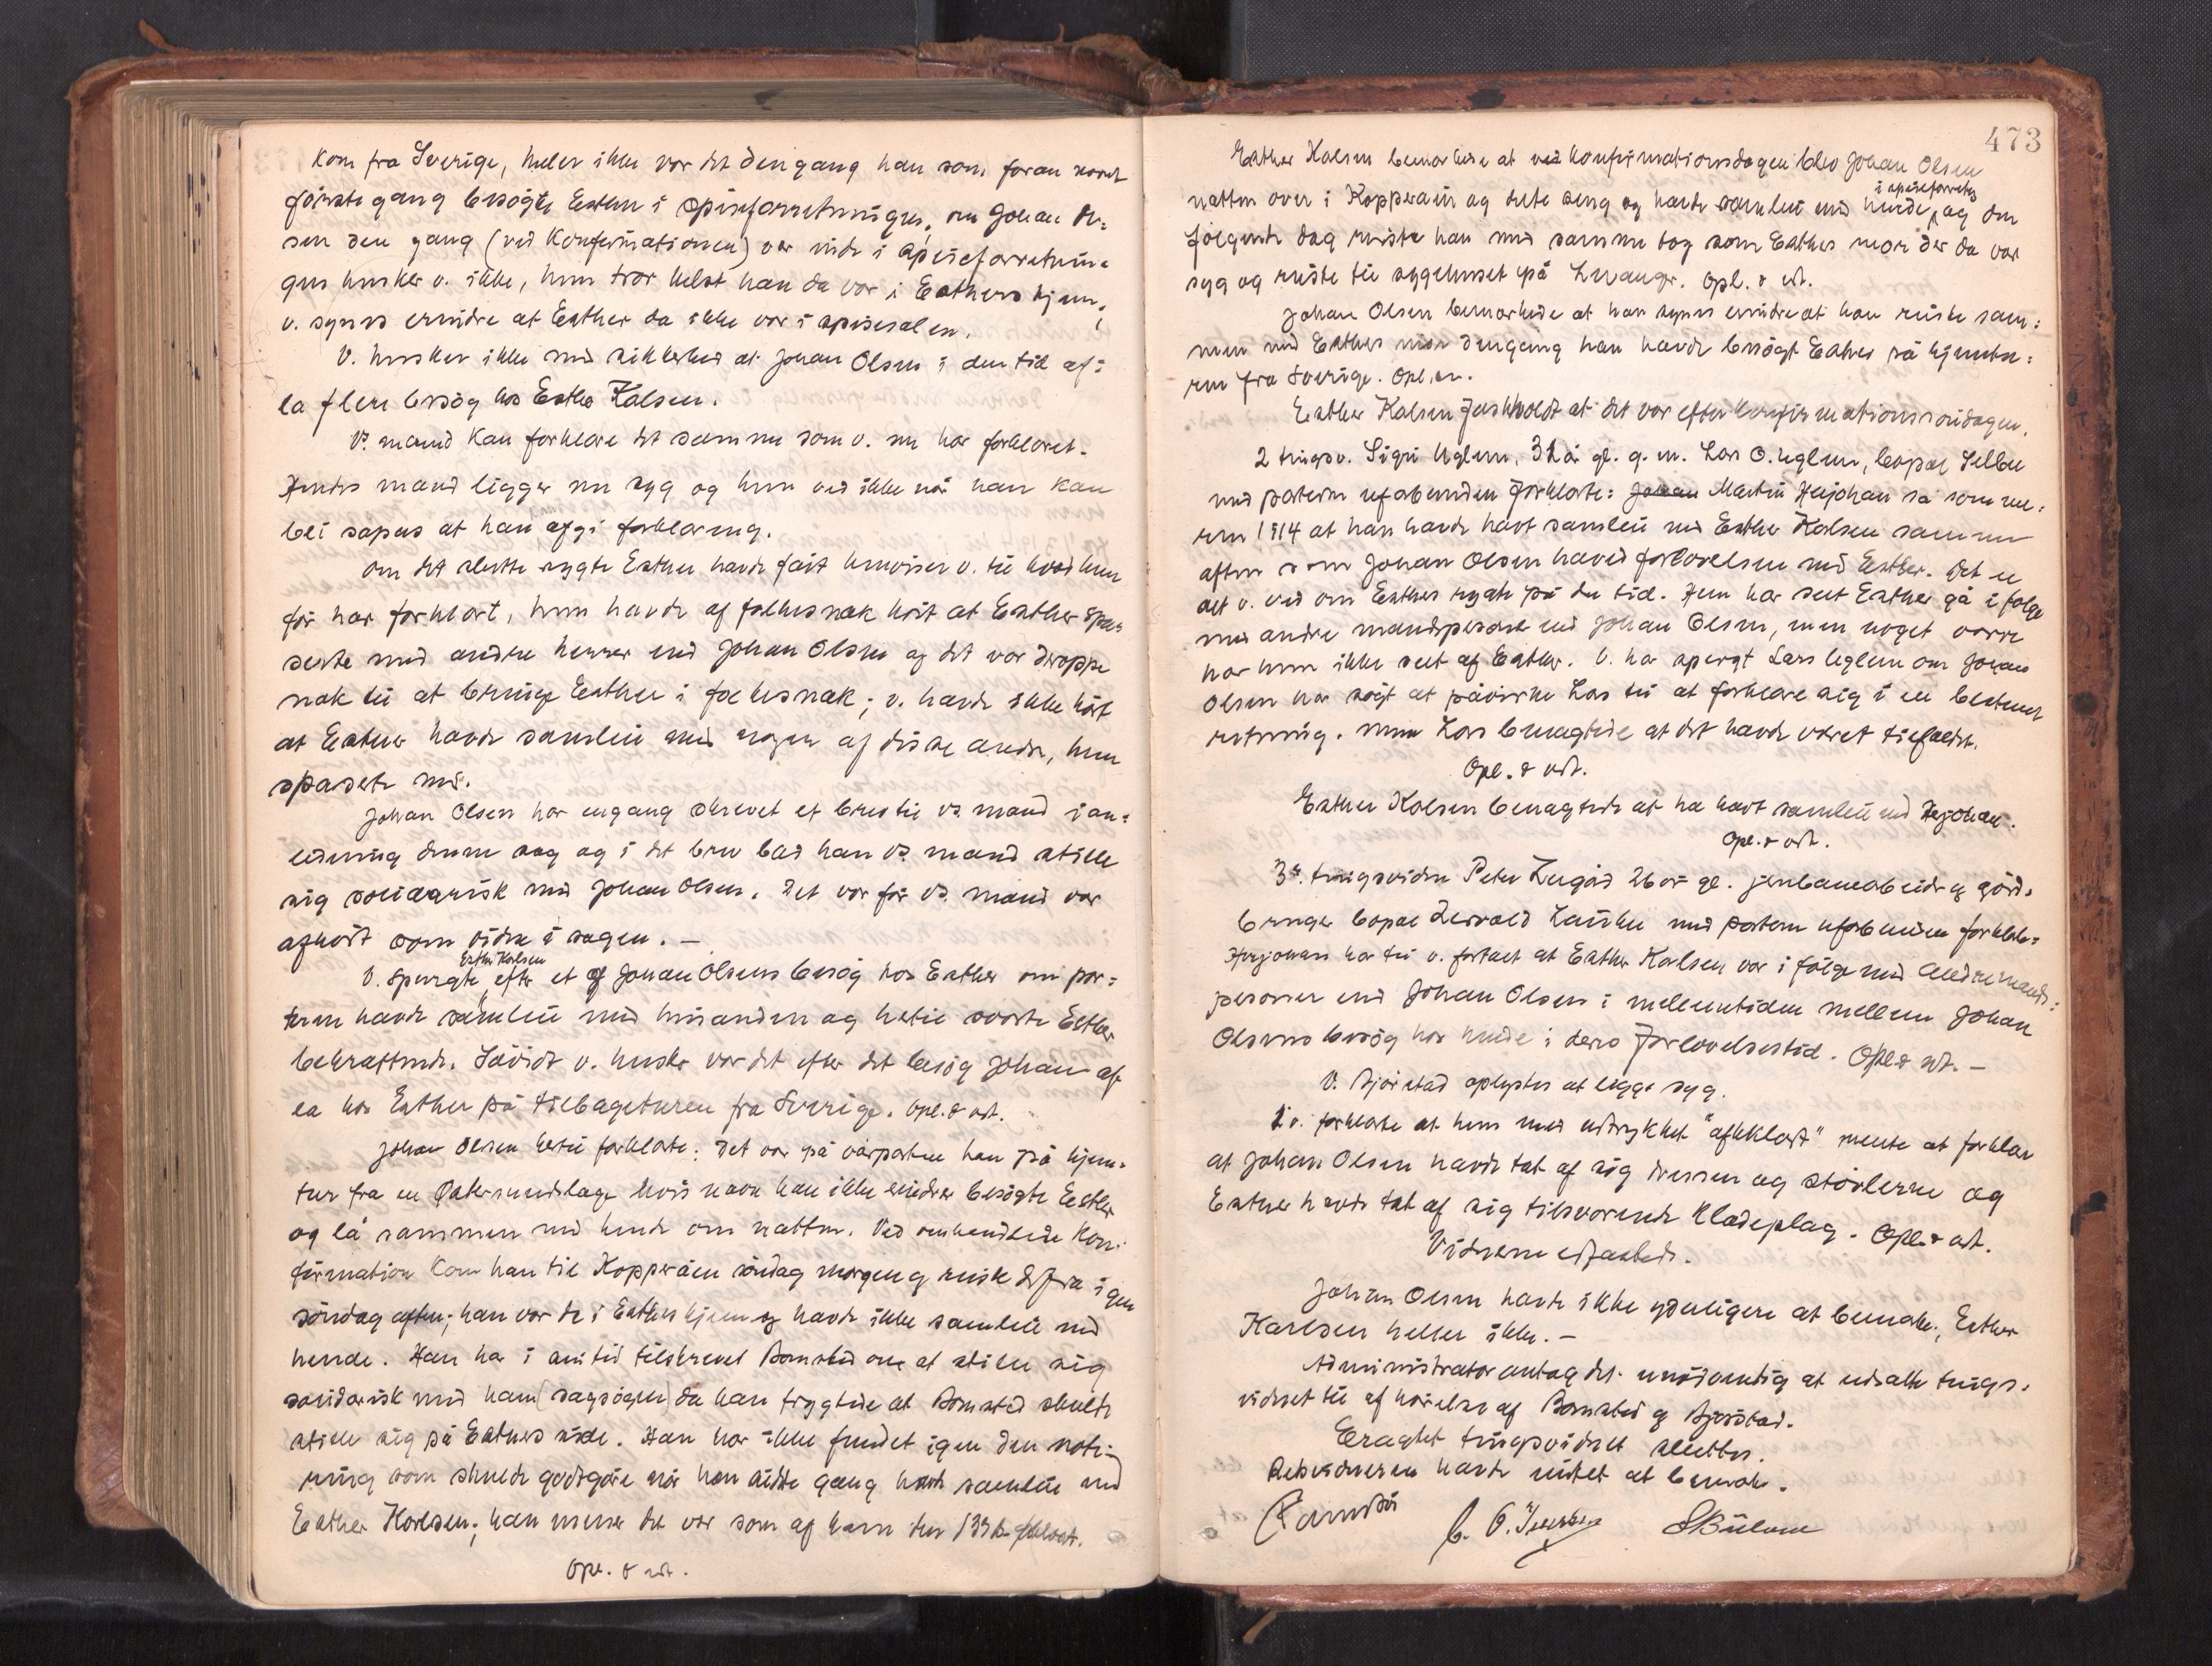 kom fra Sverige, heller ikke var det dengang han som foran nævnt
første gang besøgte Esther i spiseforretningen, om Johan Ol=
sen den gang (ved Konfirmationen) var inde i spiseforretnin=
gen husker v. ikke, hun tror helst han da var i Esthers hjem,
v. synes erindre at Esther da ikke var i spisesalen.
V. husker ikke med sikkerhed at Johan Olsen i den tid af=
la flere besøg hos Esther Kalsen.
Vs. mand kan forklare det samme som v. nu har forklaret.
Hendes mand ligger nu syg og hun ved ikke når han kan
bli sapas at han kan afgi forklaring.
Om det slette rygte Esther havde fåit henviser v. til hvad hun
før har forklart, hun havde af folkesnak hørt at Esther spa=
serte med andre herrer end Johan Olsen og det var deroppe
nok til at bringe Esther i folkesnak; v. havde ikke hørt
at Esther havde samleie med nogen af disse andre, hun
spaserte med.
Johan Olsen har engang skrevet et brev til vs. mand i an=
ledning denne sag og i det brev bad han vs. mand stille
sig solidarisk med Johan Olsen. Det var før vs. mand var
afhørt som vidne i sagen. —
Esther Karlsen
V. spurgte efter et af Johan Olsens besøg hos Esther om par=
terne havde samleie med hinanden og hertil svarte Esther
bekræftende. Såvidt v. husker var det efter det besøg Johan af=
la hos Esther på tilbageturen fra Sverige. Opl. & vedt.
Johan Olsen hertil forklarte: Det var på vårparten han på hjem=
tur fra en Østersundslage hvis navn han ikke erindrer besøgte Esther
og lå sammen med hende om natten. Ved omhandlede Kon=
firmation kom han til Kopperåen søndag morgen og reiste derfra igen
søndag aften; han var da i Esthers hjem og havde ikke samleie med
hende. Han har i sin tid tilskrevet Bomstad om at stille sig
solidarisk med ham (sagsøgeren) da han frygtede at Bomstad skulde
stille sig på Esthers side. Han har ikke fundet igen den note=
ring som skulde godtgøre når han sidste gang havde samleie med
Esther Karlsen; han mener det var som af ham før forklaret.
Opl. & vedt.
473
Esther Kalsen bemærkede at ved konfirmationsdagen blev Johan Olsen
i spiseforretng
natten over i Kopperåen og delte seng og havde samleie med hende, og den
følgende dag reiste han med samme tog som Esthers mor der da var
syg og reiste til sygehuset på Levanger. Opl. & vedt.
Johan Olsen bemærkede at han synes erindre at han reiste sam=
men med Esthers mor dengang han havde besøgt Esther på hjemtu=
ren fra Sverige. Opl.
Esther Kalsen fastholdt at det var efter konfirmationssøndagen.
2 tingsv. Sigri Uglem, 31 år gl. g. m. Lars O. Uglem, bopæl Selbu
med parterne ubeslegtet forklarte: Johan Martin Hejohan sa sommer=
ren 1914 at han havde havt samleie med Esther Kalsen samme
aften som Johan Olsen hævet forlovelsen med Esther. Det er
alt v. ved om Esthers rygte på den tid. Hun har seet Esther gå i følge
med andre mandspersoner end Johan Olsen, men noget værre
har hun ikke seet af Esther. V. har spurgt Lars Uglem om Johan
Olsen har søgt at påvirke Lars til at forklare sig i en bestemt
retning. men Lars benægtede at det havde været tilfældet.
Opl. & vedt.
Esther Kalsen benægtede at ha havt samleie med Hejohan.
Opl. & vedt.
3de. tingsvidne Peter 26 år gl. jernbanearbeider og gård=
bruger bopæl med parterne forklarte=
Hejohan har til v. fortalt at Esther Karlsen var i følge med andre mands=
personer end Johan Olsen i mellemtiden mellem Johan
Olsens besøg hos hende i deres forlovelsestid. Opl. & vedt. —
V. Bjørstad oplystes at ligge syg.
1 v. forklarte at hun med udtrykket "afklædt" mente at forklare
at Johan Olsen havde tat af sig dressen og støvlerne og
Esther havde tat af sig tilsvarende klædeplag. Opl. & vedt.
Vidnerne edfæstede.
Johan Olsen havde ikke yderligere at bemærke, Esther
Karlsen heller ikke. —
Administrator antog det unødvendig at udsætte tings=
vidnet til afhørelse af Bomstad og Bjørstad.
Eragtet tingsvidnet sluttes.
Retsvidnerne havde intet at bemærke.